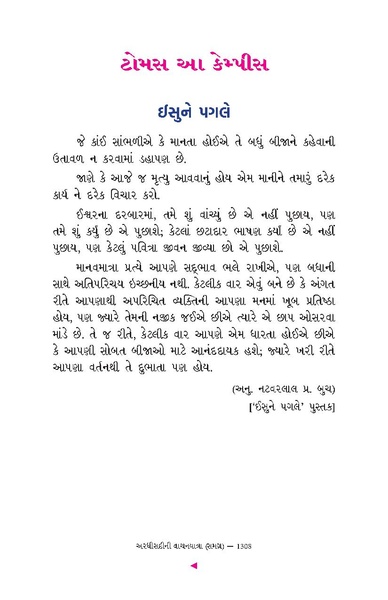 ટોમસ આ કેમ્પીસ
ઇસુને પગલે
જે કાંઈ સાંભળીએ કે માનતા હોઈએ તે બધું બીજાને કહેવાની
ઉતાવળ ન કરવામાં ડહાપણ છે.
જાણે કે આજે જ મૃત્યુ આવવાનું હોય એમ માનીને તમારું દરેક
કાર્ય ને દરેક વિચાર કરો.
ઈશ્વરના દરબારમાં, તમે શું વાંચ્યું છે એ નહીં પુછાય, પણ
તમે શું કર્યું છે એ પુછાશે; કેટલાં છટાદાર ભાષણ કર્યાં છે એ નહીં
પુછાય, પણ કેટલું પવિત્રા જીવન જીવ્યા છો એ પુછાશે.
માનવમાત્રા પ્રત્યે આપણે સદ્‌ભાવ ભલે રાખીએ, પણ બધાની
સાથે અતિપરિચય ઇચ્છનીય નથી. કેટલીક વાર એવું બને છે કે અંગત
રીતે આપણાથી અપરિચિત વ્યક્તિની આપણા મનમાં ખૂબ પ્રતિષ્ઠા
હોય, પણ જ્યારે તેમની નજીક જઈએ છીએ ત્યારે એ છાપ ઓસરવા
માંડે છે. તે જ રીતે, કેટલીક વાર આપણે એમ ધારતા હોઈએ છીએ
કે આપણી સોબત બીજાઓ માટે આનંદદાયક હશે; જ્યારે ખરી રીતે
આપણા વર્તનથી તે દુભાતા પણ હોય.
(અનુ. નટવરલાલ પ્ર. બુચ)
['ઈસુને પગલે' પુસ્તક]
અરધીસદીની વાચનયાત્રા (સમગ્ર) — 1308